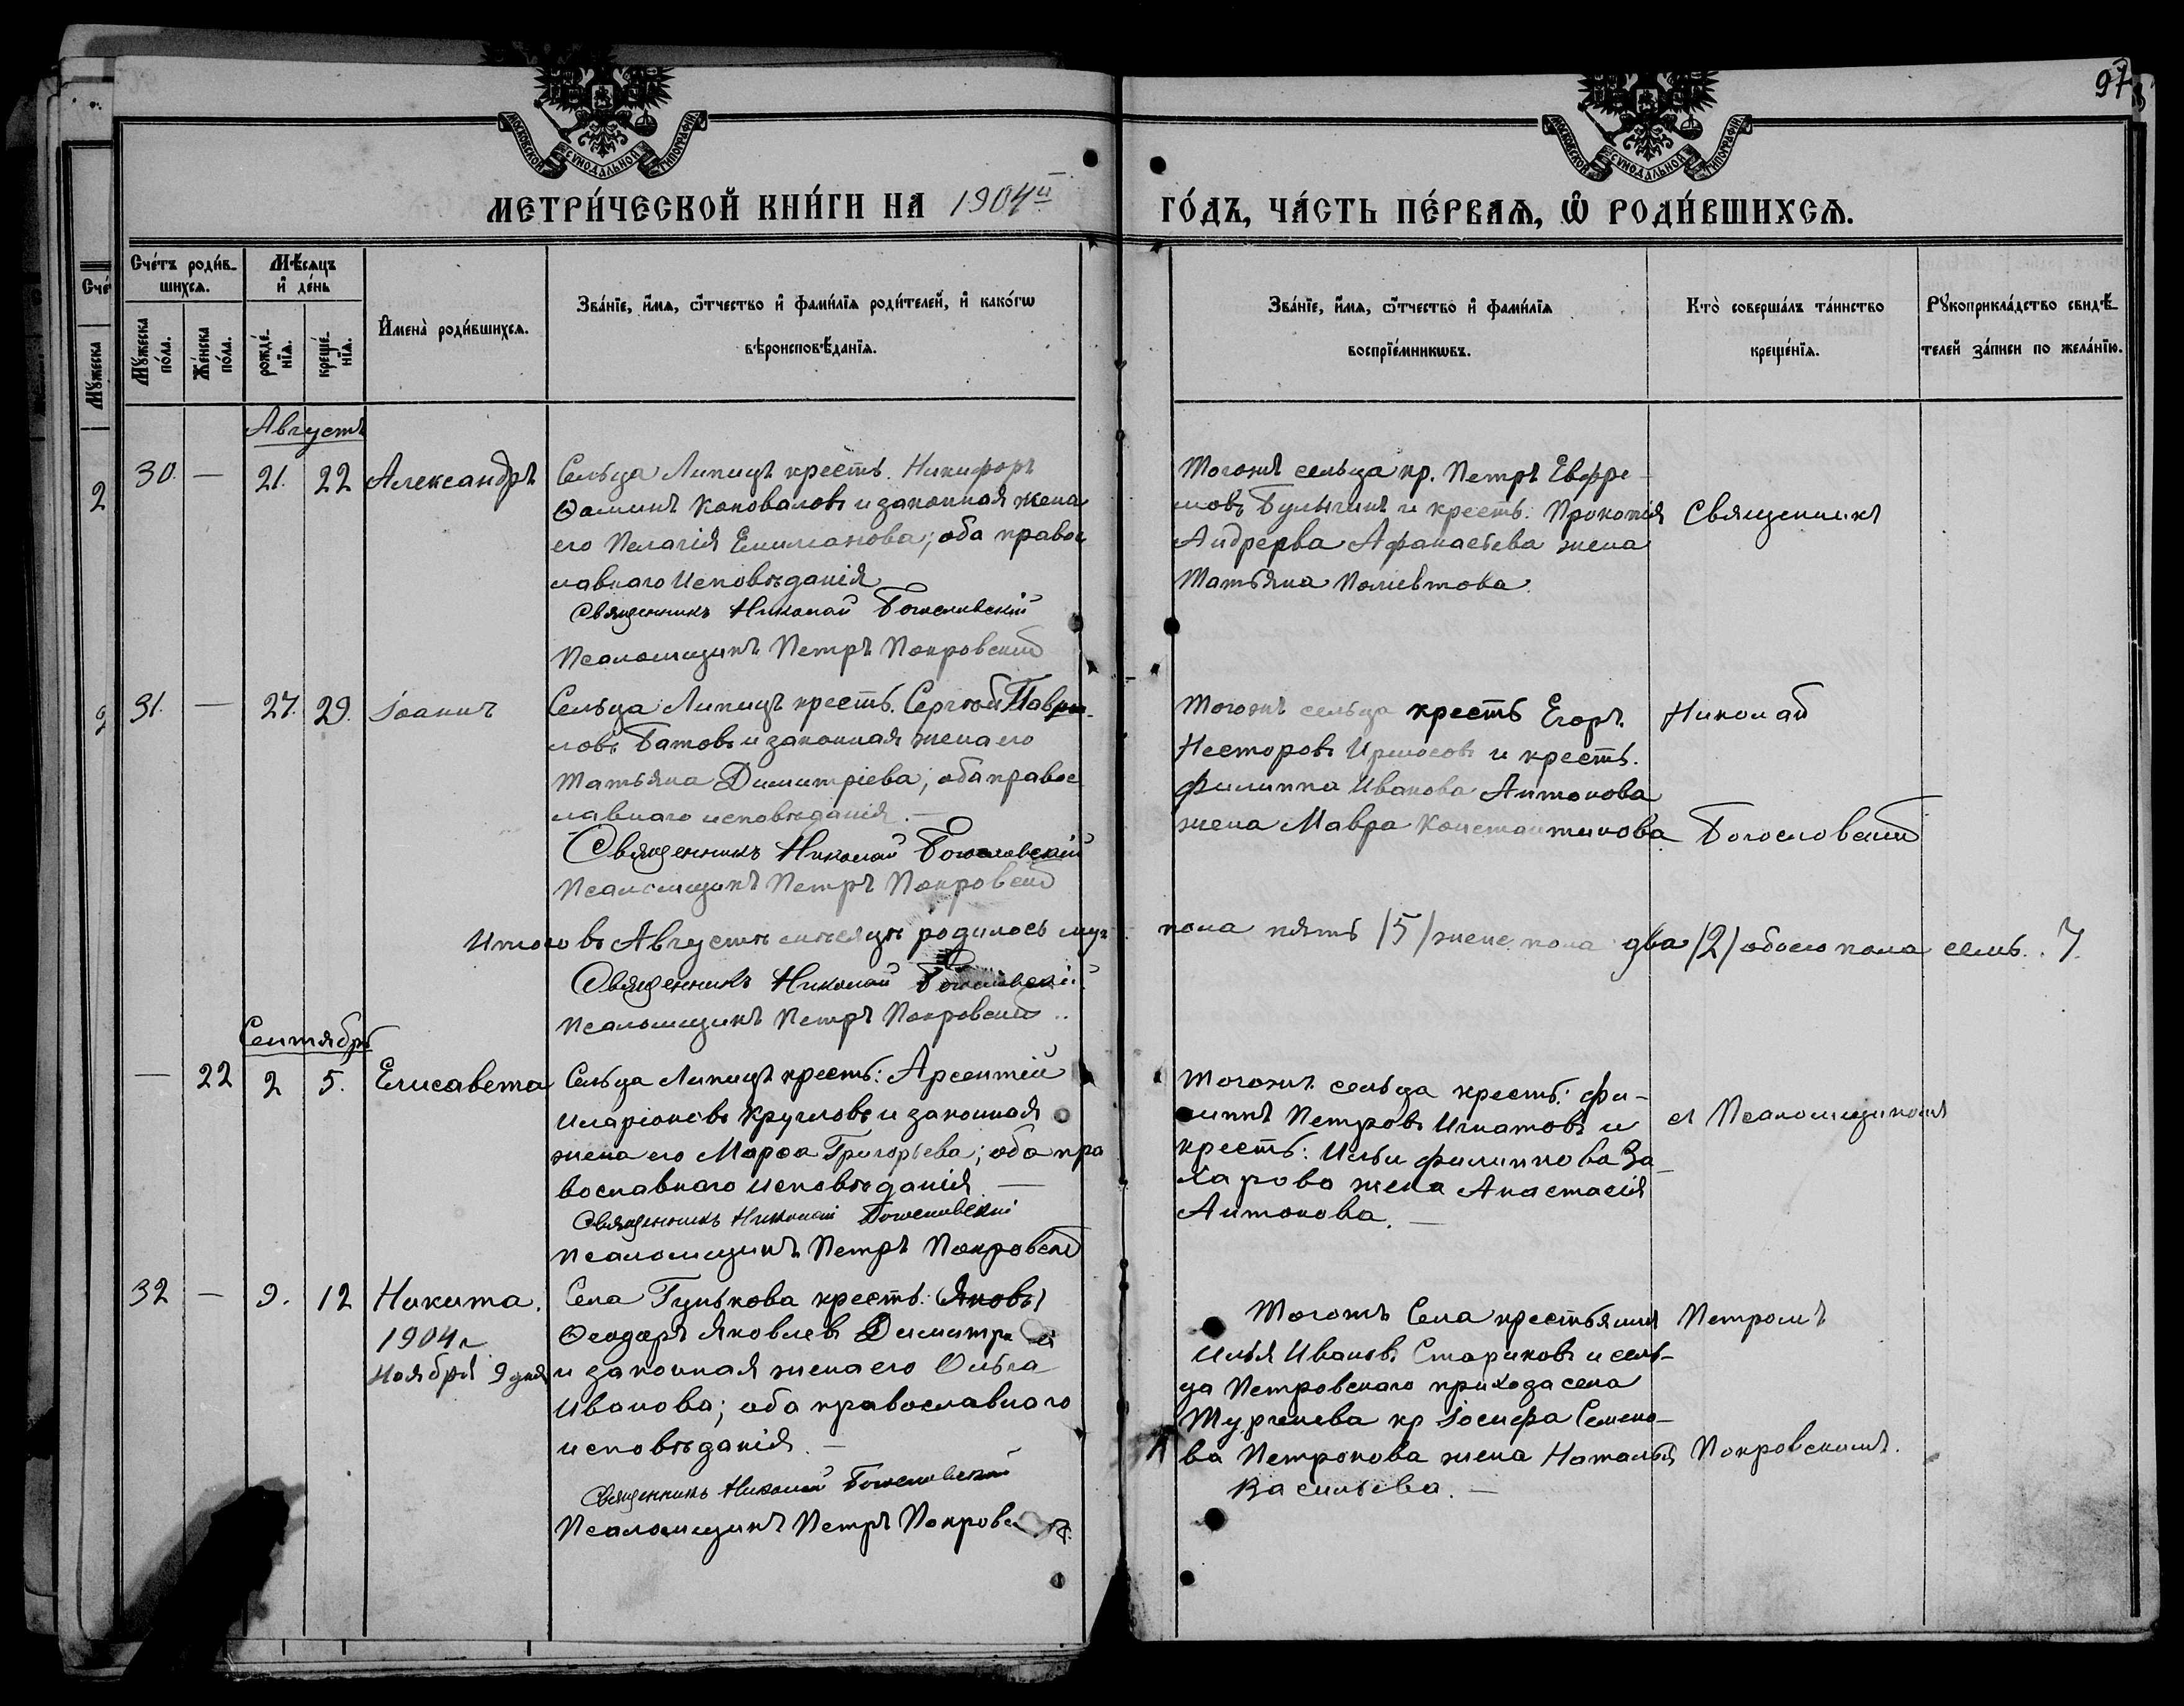 97
МОСКОВСКОЙ СѴНОДАЛЬНОЙ ТИПОГРАФІИ
МОСКОВСКОЙ СѴНОДАЛЬНОЙ ТИПОГРАФІИ
МЕТРИ́ЧЕСКОЙ КНИ́ГИ НА 1904й ГО́ДЪ, ЧА́СТЬ ПЕ́РВАѦ, Ѡ҆ РОДИ́ВШИХСѦ.
Сче́тъ роди́в-
шихсѧ.
Мѣ́сѧцъ
и҆ де́нь
Мꙋ́жеска
по́ла.
Же́нска
по́ла.
рожде́-
нїѧ.
креще́-
нїѧ.
И҆мена̀ роди́вшихсѧ.
Зва́нїе, и҆́мѧ, ѻ҆́тчество и҆ фами́лїѧ роди́телей, и҆ како́гѡ
вѣроисповѣ́данїѧ.
Зва́нїе, и҆́мѧ, ѻ҆́тчество и҆ фами́лїѧ
воспрїе́мникѡвъ.
Кто̀ соверша́лъ та́инство
креще́нїѧ.
Рꙋкоприкла́дство свидѣ́-
телей за́писи по жела́нїю.
Августъ
30. — 21. 22 Александръ
Сельца Липицъ крестъ. Никифоръ
Ѳоминъ Коновалов и законная жена
его Пелагія Епиманова; оба правос
лавнаго исповѣданія
Священникъ Николай Богословскій
Псаломщикъ Петръ Покровскій
Тогожъ сельца кр. Петръ Евфре-
мовъ Булыгинъ и крестъ. Прокопія
Андреева Афанасьева жена
Татьяна Полиевтова.
Священникъ
31. — 27. 29. Іоаннъ
Сельца Липицъ крестъ. Сергѣй Гаври-
ловъ Батовъ и законная жена его
Татьяна Димитріева; оба правос
лавнаго исповѣданія. —
Священникъ Николай Богословскій
Псаломщикъ Петръ Покровскій
Тогожъ сельца крестъ Егоръ
Несторовъ Ирмосовъ и крестъ.
Филиппа Иванова Антонова
жена Мавра Константинова.
Николай
Богословскій
Итого въ Августѣ мѣсяцѣ родилось муж пола пять /5/ женс. пола два /2/ обоего пола семь. . 7.
Священникъ Николай Богословскій
Псаломщикъ Петръ Покровскій ..
Сентябрь
— 22 2 5. Елисавета
Сельца Липицъ крестъ: Арсентій
Иларіоновъ Кругловъ и законная
жена его Марѳа Григорьева; оба пра
вославнаго исповѣданія. —
Священникъ Николай Богословскій
Псаломщикъ Петръ Покровскій
Тогожъ сельца крестъ: Фи-
липпъ Петровъ Игнатовъ и
крестъ: Ильи Филиппова За-
харова жена Анастасія
Антонова. —
съ Псаломщикомъ
32 — 9. 12 Никита.
1904 г
Ноября 9 дня
Села Гунькова крестъ: Яковъ
Ѳеодоръ Яковлевъ Димитр
и законная жена его Ольга
Иванова; оба православнаго
исповѣданія. —
Священникъ Николай Богословскій
Псаломщикъ Петръ Покровс
Тогожъ Села крестьянинъ
Илья Ивановъ Стариковъ и сель-
ца Петровскаго прихода села
Тургенева кр Іосифа Семено-
ва Петрокова жена Наталья
Васильева. —
Петромъ
Покровскимъ.